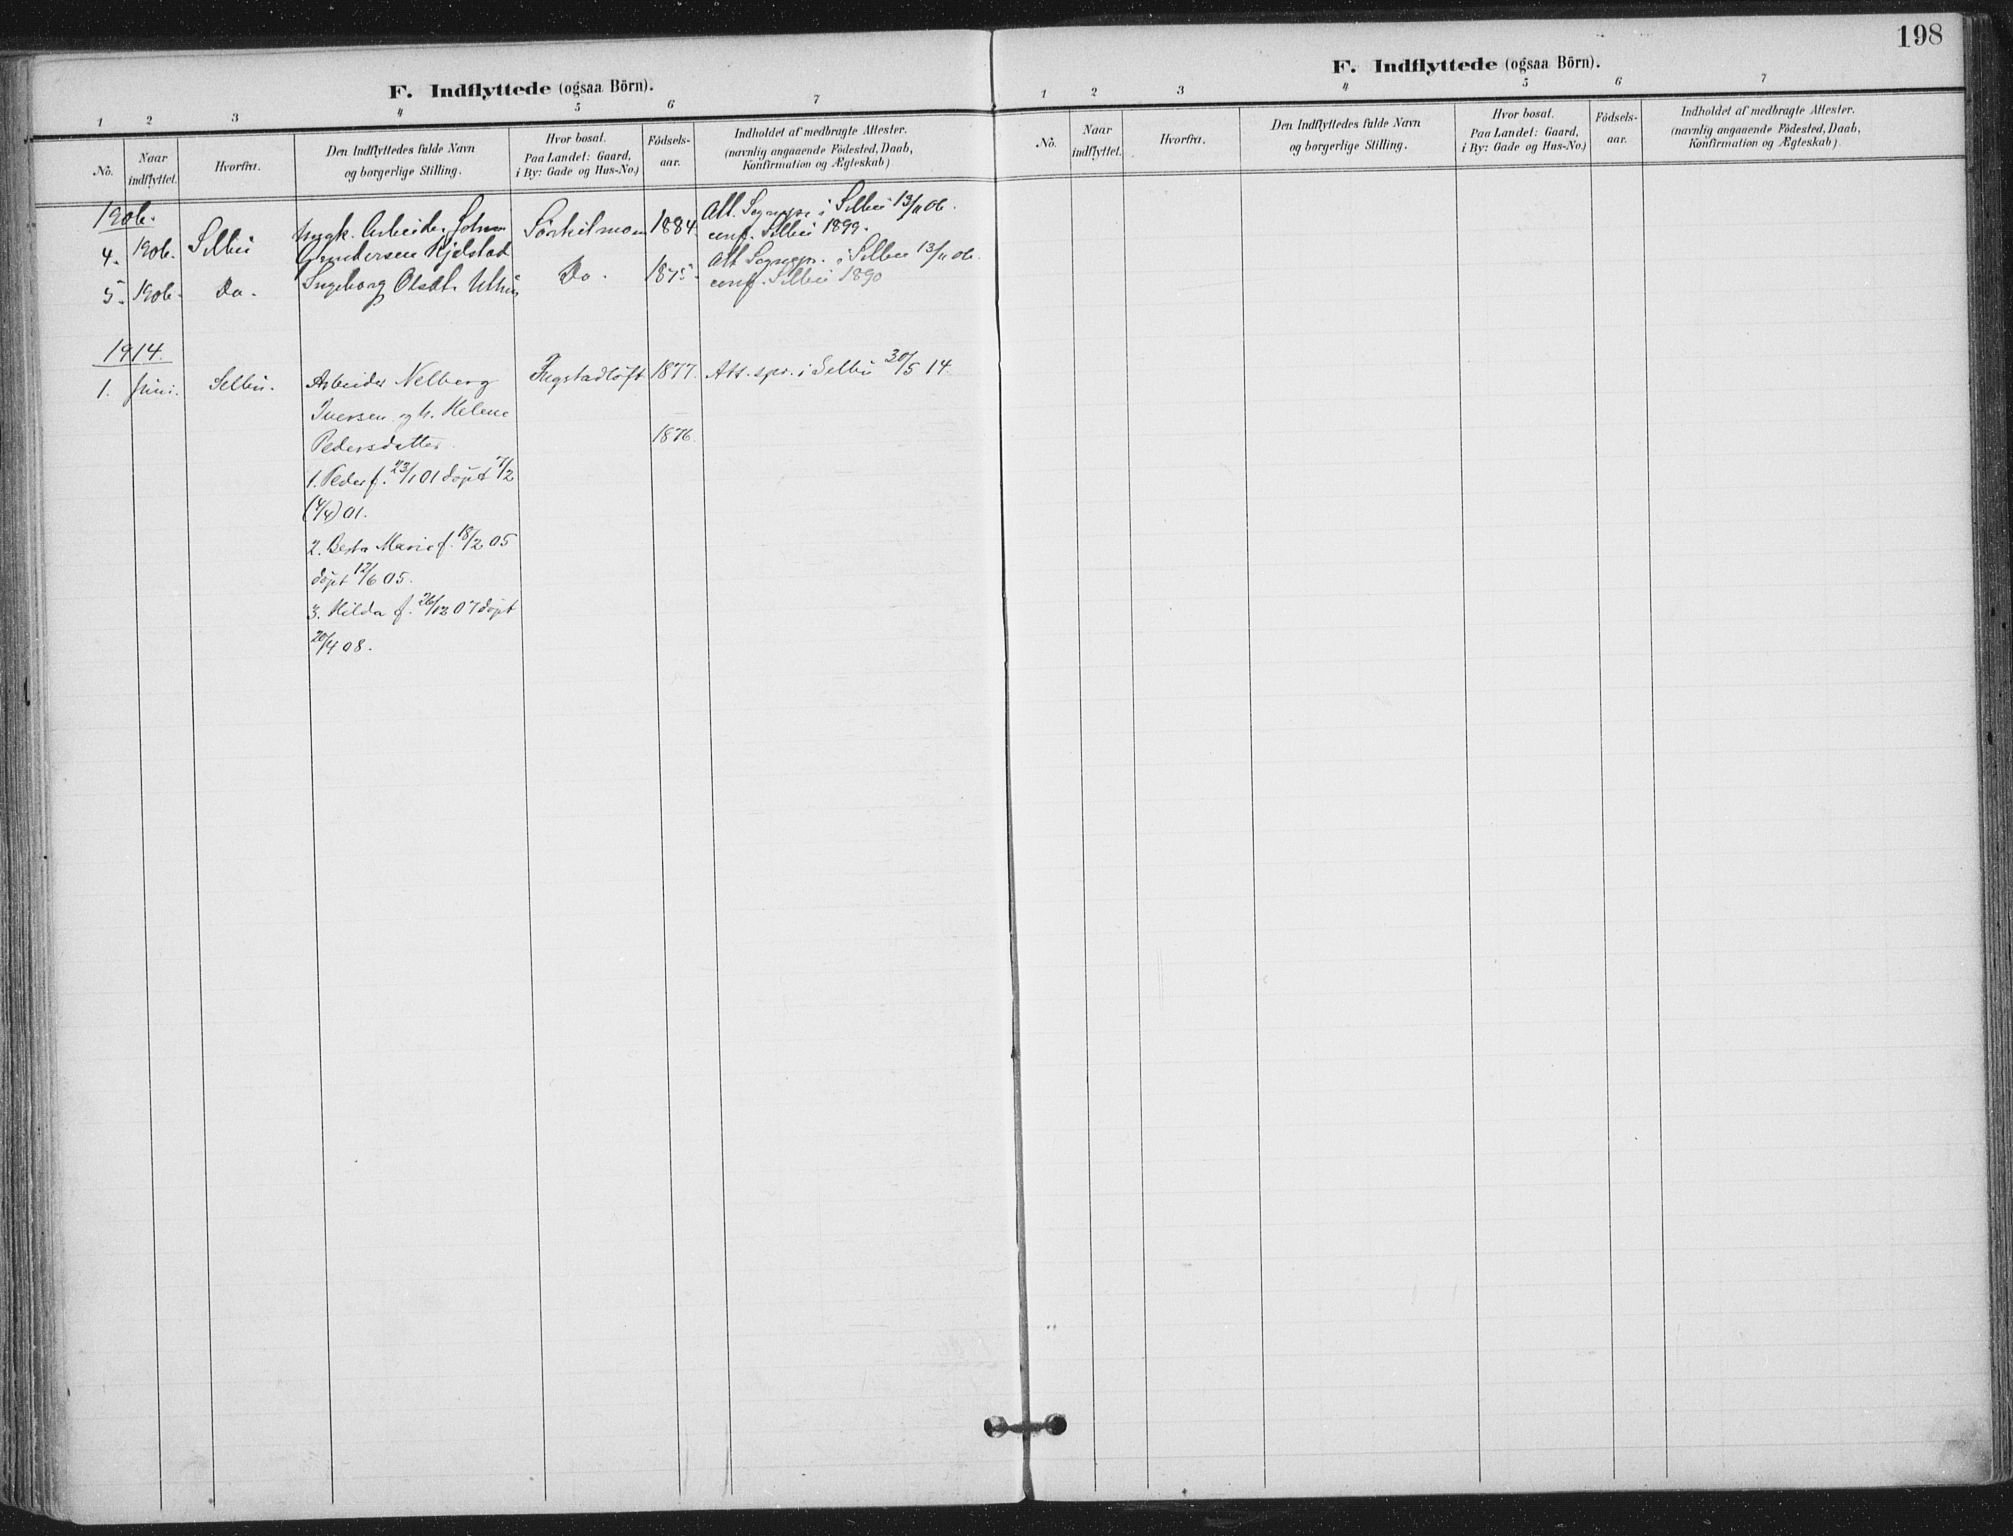 198
F. Indflyttede (ogsaa Börn).
1 2 3 4 5 6 7
No.
Naar indflyttet.
Hvorfra.
Den Indflyttedes fulde Navn
og borgerlige Stilling.
Hvor bosat.
Paa Landet: Gaard,
i By: Gade og Hus-No.)
Födsels-
aar.
Indholdet af medbragte Attester.
(navnlig angaaende Födested, Daab,
Konfirmation og Ægteskab)
1906.
4. 1906. Selbu Ungk. Arbeider Johan 1884. Att. Sognepr. i Selbu 13/11 06.
Gundersen Kjelstad conf. Selbu 1899.
5. 1906. Do. Ingeborg Olsdt. Uthus Do. 1875. Att Sognepr. i Selbu 13/11 06.
conf. Selbu 1890
1914.
1. Juni. Selbu. Arbeider Nelberg Ingstadloft 1877. Att. spr. i Selbu 30/5 14.
Iversen og h. Helene
Pedersdatter. 1876.
1. Peder f. 23/1 01 döpt 7/2
(4/4) 01.
2. Berta Marie f. 18/2 05
döpt 12/6 05.
3. Hilda f. 26/12 07 döpt
20/4 08.
F. Indflyttede (ogsaa Börn).
1 2 3 4 5 6 7
No.
Naar
indflyttet.
Hvorfra.
Den Indflyttedes fulde Navn
og borgerlige Stilling.
Hvor bosat.
Paa Landet: Gaard,
i By: Gade og Hus-No.)
Födsels-
aar.
Indholdet af medbragte Attester.
(navnlig angaaende Födested, Daab,
Konfirmation og Ægteskab)